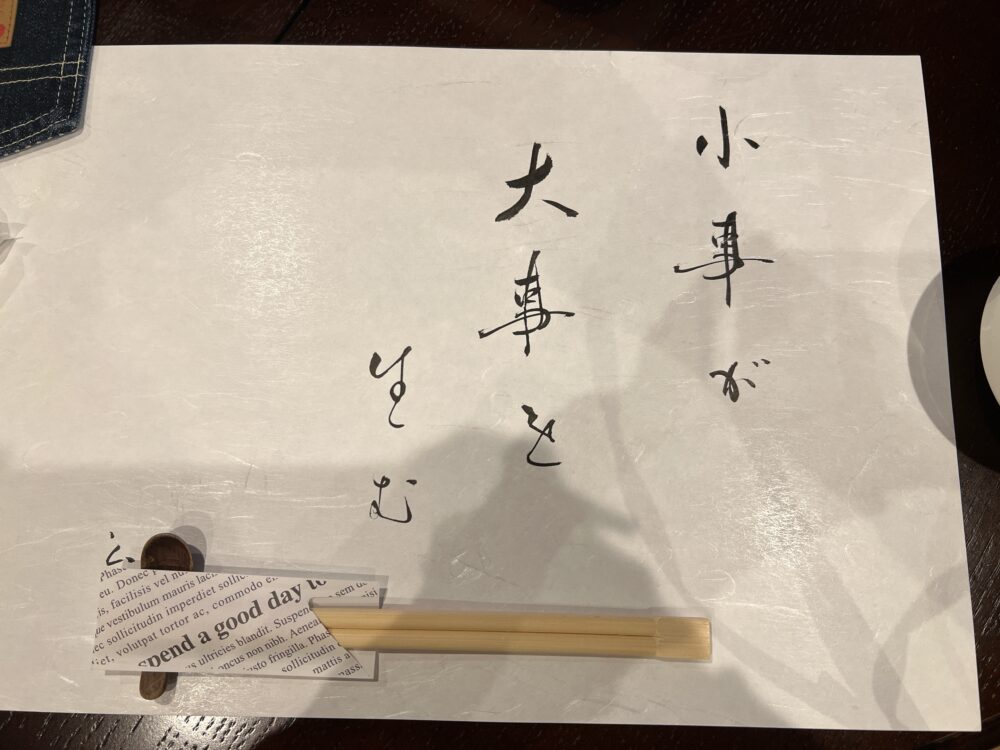 小事が
大事を
生む
Phas
eu. Donec
is, facilisis vel nu
ue vestibulum mauris laci
ec sollicitudin imperdiet sollic
iet, volutpat tortor ac, commodo e
spend a good day to
sem du
isi
ultricies blandit. Suspen
oncus non nibh. Aenea
usto fringilla. Phas
sollicitudin
mattis a
nass.